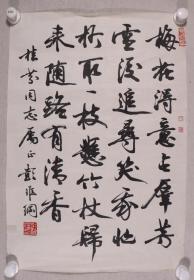 梅花得意占群芳
雪后追寻笑我忙
折取一枝悬竹杖归
来随路有清香
桂芬同志属正 彭